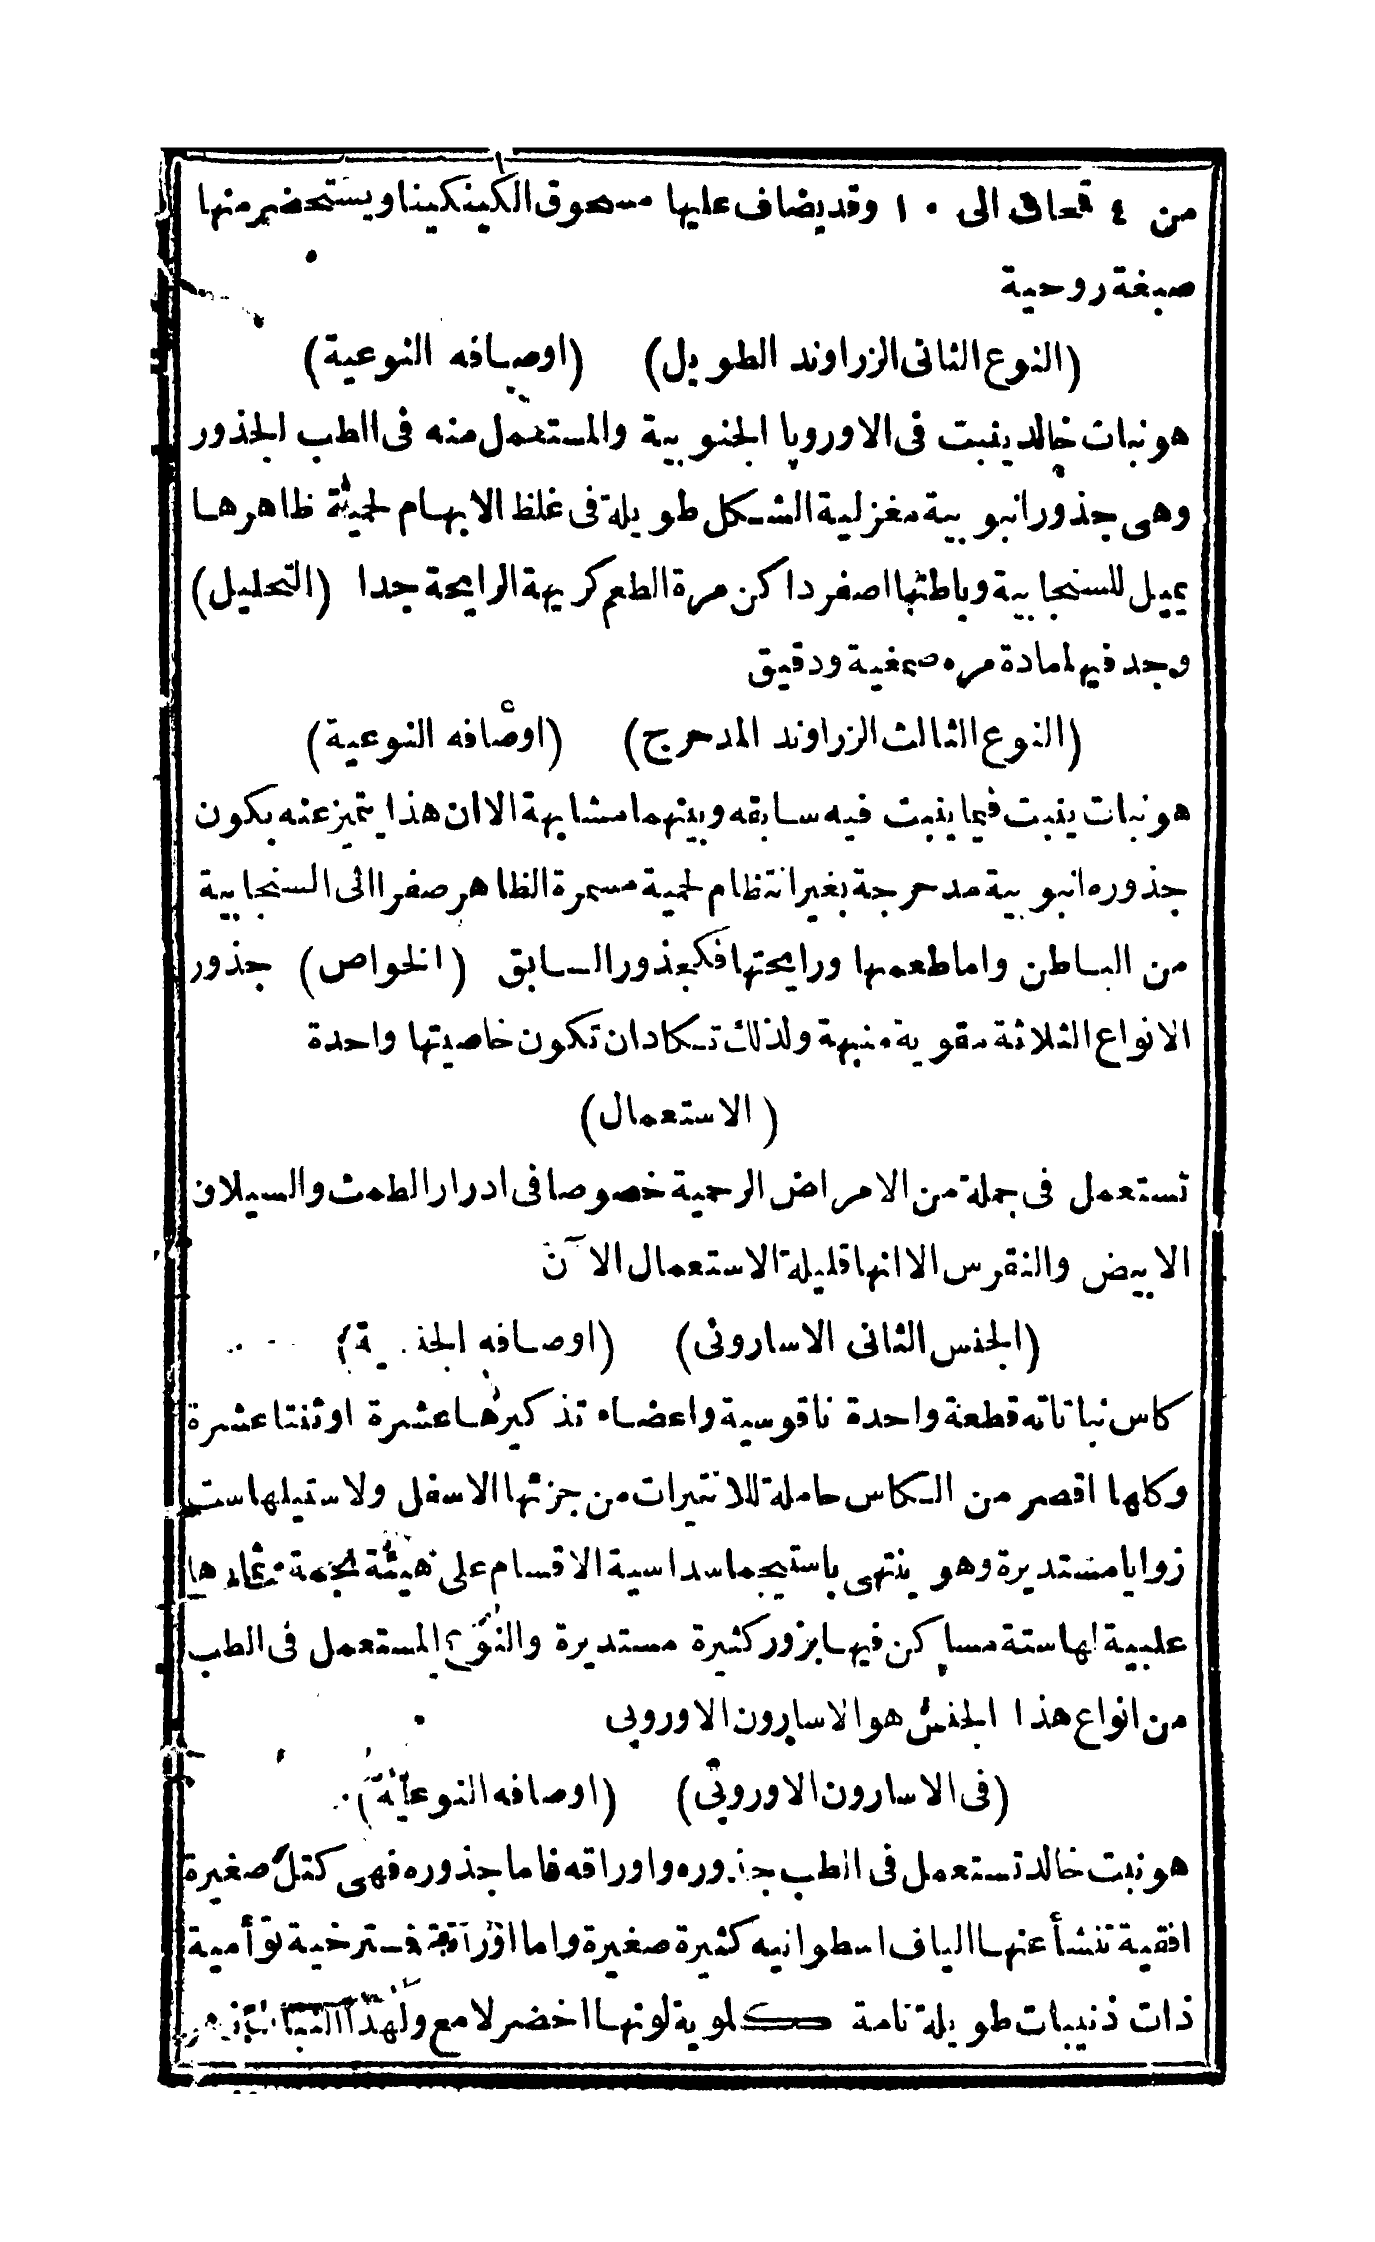 من ٤ قمحات الى ١٠ وقد يضاف عليها مسحوق الكينكينا ويستحضر منها
صبغة روحية
(النوع الثانى الزراوند الطويل) (اوصافه النوعية)
هو نبات خالد ينبت فى الاوروپا الجنوبية والمستعمل منه فى الطب الجذور
وهى جذور انبوبية مغزلية الشكل طويلة فى غلظ الابهام لحمية ظاهرها
يميل للسنجابية وباطنها اصفر داكن مرة الطعم كريهة الرايحة جدا (التحليل)
وجد فيها مادة مره صمغية ودقيق
(النوع الثالث الزراوند المدحرج) (اوصافه النوعية)
هو نبات ينبت فيما ينبت فيه سابقه وبينهما مشابهة الا ان هذا يتميز عنه بكون
جذوره انبوبية مدحرجة بغير انتظام لحمية مسمرة الظاهر صفرا الى السنجابية
من الباطن واما طعمها ورايحتها فكجذور السابق (الخواص) جذور
الانواع الثلاثة مقوية منبهة ولذلك تكاد ان تكون خاصيتها واحدة
(الاستعمال)
تستعمل فى جملة من الامراض الرحمية خصوصا فى ادرار الطمث والسيلان
الابيض والنقرس الا انها قليلة الاستعمال الآن
(الجنس الثانى الاسارونى) (اوصافه الجنسية)
كاس نباتاته قطعة واحدة ناقوسية واعضاء تذكيرها عشرة او ثنتا عشرة
وكلها اقصر من الكاس حاملة للانتيرات من جزئها الاسفل ولاستيلها ست
زوايا مستديرة وهو ينتهى باستيجما سداسية الاقسام على هيئة نجمة ثمارها
علبية لها ستة مساكن فيها بزور كثيرة مستديرة والنوع المستعمل فى الطب
من انواع هذا الجنس هو الاسارون الاوروپى
(فى الاسارون الاوروپى) (اوصافه النوعية)
هو نبت خالد تستعمل فى الطب جذوره واوراقه فاما جذوره فهى كتل صغيرة
افقية تنشأ عنها الياف اسطوانيه كثيرة صغيرة واما اوراقه فسترخية توأمية
ذات ذنيبات طويلة تامة كلوية لونها اخضر لامع ولهذا النبات